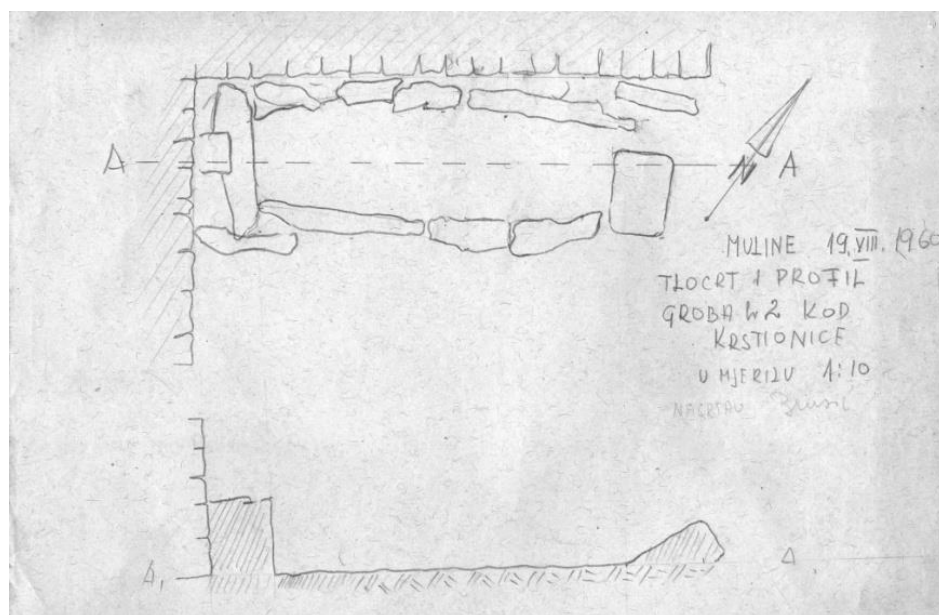 A A
N
MULINE 19. VIII. 1960
TLOCRT I PROFIL
GROBA br 2 KOD
KRSTIONICE
U MJERILU 1:10
NACRTAO
A, A